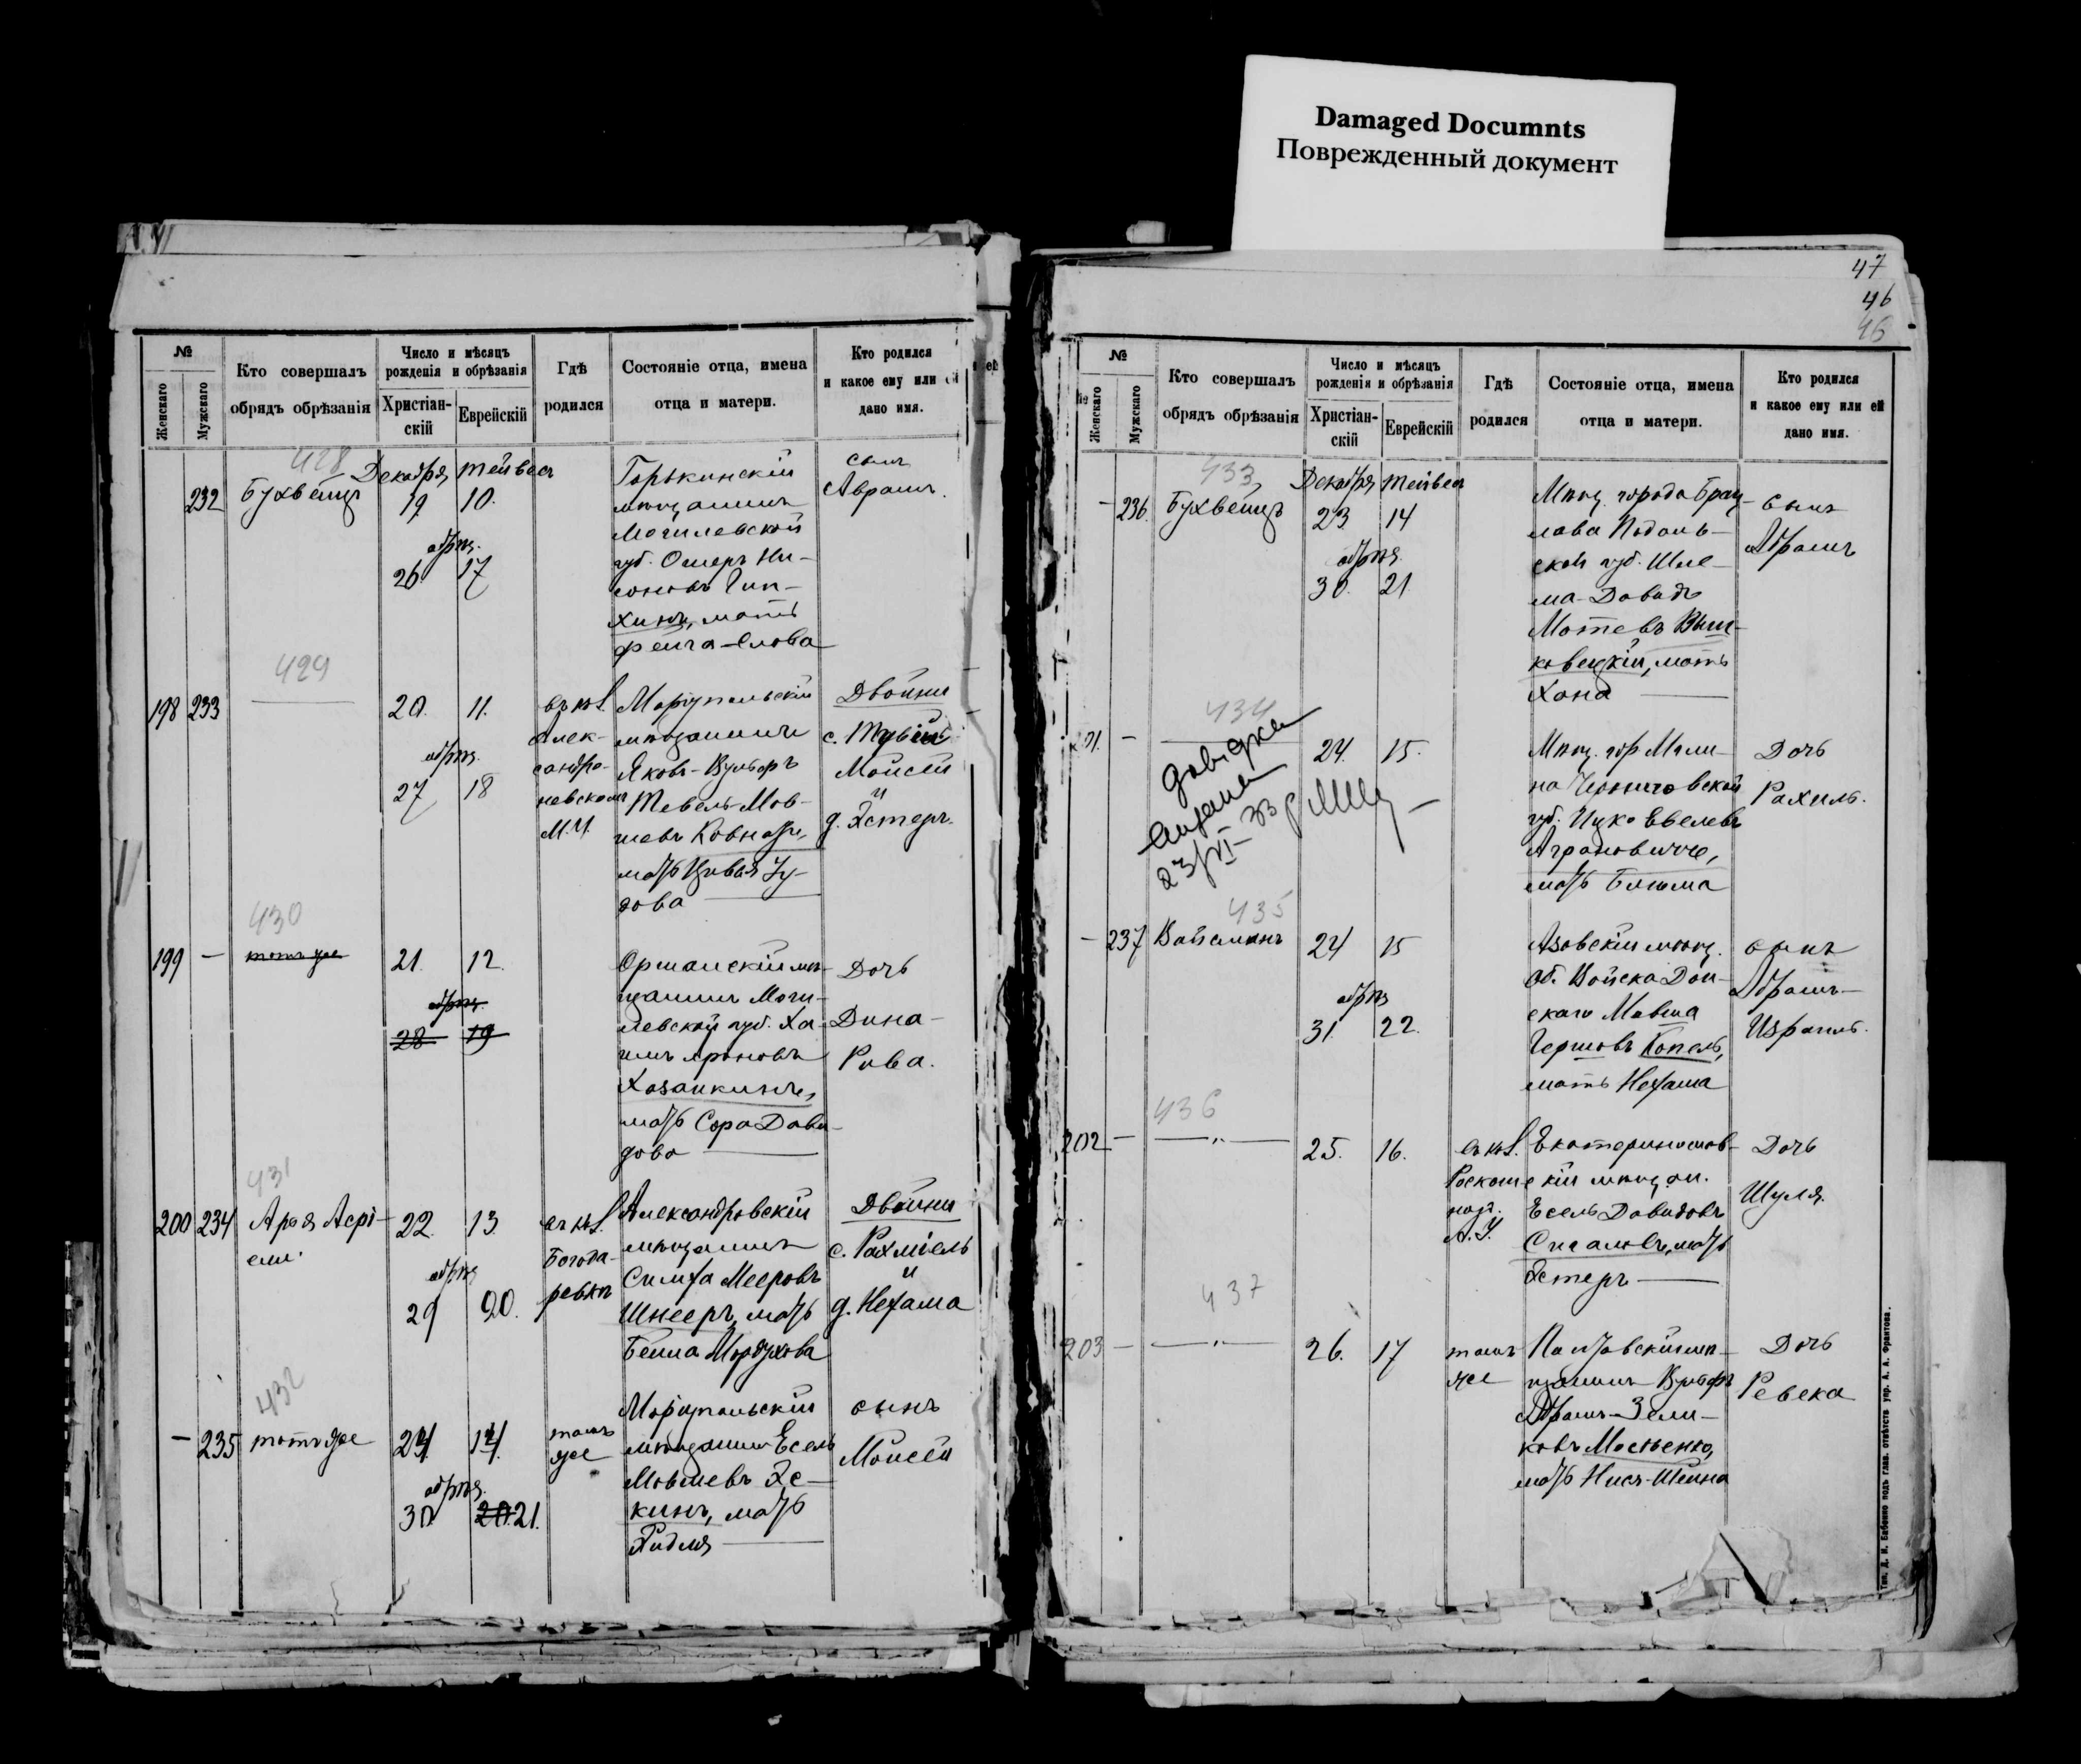 Damaged Documnts
Поврежденный документ
№
Женскаго
Мужскаго
Кто совершалъ
обрядъ обрѣзанія
Число и мѣсяцъ
рожденія и обрѣзанія
Христіан-
скій
Еврейскій
Гдѣ
родился
Состояніе отца, имена
отца и матери.
Кто родился
и какое ему или ей
дано имя.
428
232
Бухвейцъ
Декабря
19
Тейвеса
10.
обрѣз.
26
17
Горькинскій
мѣщанинъ
Могилевской
губ. Омеръ Ни-
соновъ
хинъ, мать
сынъ
Аврамъ.
429
198
233
20.
11.
обрѣз.
27
18
въ кол.
Алек-
сандро-
невскомъ
М.У.
Маріупольскій
мѣщанинъ
Яковъ-Вульфъ
Тевель Мов-
шевъ
мать Цивья Іу-
дова
Двойни
с.
Мойсей
и
д. Эстеръ.
430
199
—
тотъ же
21.
12.
обрѣз.
28
19
Оршанскій мѣ-
щанинъ Моги-
левской губ. Ха-
имъ Ароновъ
Хазанкинъ,
мать Сора Дави-
дова
Дочь
Дина-
Рива.
431
200
234
Арья Асрі-
ели.
22.
13.
обрѣз
29
20.
въ кол.
Богода-
ровкѣ
Александровскій
мѣщанинъ
Симха Мееровъ
Шнееръ, мать
Бейла Мордухова
Двойни
с. Рахміель
и
д. Нехама
432
—
235
тотъ же
14.
обрѣз.
30
20. 21.
тамъ
же
Маріупольскій
мѣщанинъ Есель
Мовшевъ Эс-
кинъ, мать
сынъ
Мойсей
47
46
45
№
Женскаго
Мужскаго
Кто совершалъ
обрядъ обрѣзанія
Число и мѣсяцъ
рожденія и обрѣзанія
Христіан-
скій
Еврейскій
Гдѣ
родился
Состояніе отца, имена
отца и матери.
Кто родился
и какое ему или ей
дано имя.
433
-
236.
Бухвейцъ
Декабря
23
Тейвеса
14
обрѣз.
30.
21.
Мѣщ. города Брац-
лава Подоль-
ской губ. Шле-
ма-Давидъ
Мотевъ Выш-
ковецкій, мать
Хана
сынъ
Абрамъ
434
201.
—
довідка
видана
23/VI-33 р
24.
15.
Мѣщ. гор Мгли-
на Черниговской
губ. Ицко Евелевъ
Аграновичъ,
мать Блюма
Дочь
Рахиль.
435
-
237
Вайсманъ
24
15
обрѣз
31.
22.
Азовскій мѣщ.
об. Войска Дон-
скаго Мовша
Гершовъ Копель,
мать Нехама
сынъ
Абрамъ-
Израиль.
436
202
—
— „ —
25.
16.
въ кол.
А.У.
Екатеринослав-
скій мѣщан.
Есель Давидовъ
Сигаловъ, мать
Эстеръ
Дочь
Шуля.
437
203
—
— „ —
26.
17
тамъ
же
Полтавскій мѣ-
щанинъ Вульфъ
Абрамъ-Зели-
ковъ
мать Нися-Шейна
Дочь
Ревека
Тип. Д. И. Бабенко подъ глав. отвѣтств. упр. А. А. Франтова.